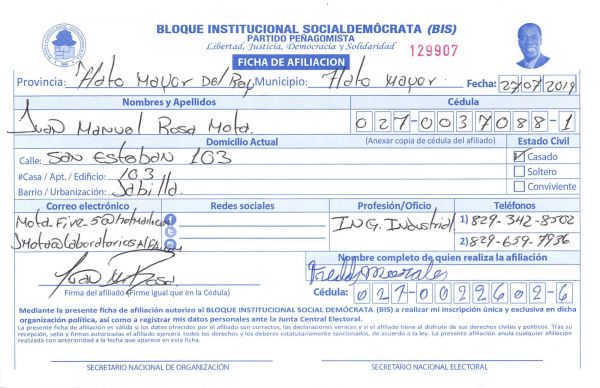 BLOQUE INSTITUCIONAL SOCIALDEMÓCRATA (BIS)
PARTIDO PEÑAGOMISTA
Libertad, Justicia, Democracia y Solidaridad
129907
FICHA DE AFILIACION
Provincia: Hato Mayor Del Rey Municipio: Hato Mayor. Fecha: 27/07/2019
Nombres y Apellidos Cédula
Juan Manuel Rosa Mota. 027-0037088-1
Domicilio Actual (Anexar copia de cédula del afiliado) Estado Civil
Calle: San Esteban 103 Casado
#Casa / Apt. / Edificio: 103 Soltero
Barrio / Urbanización: Conviviente
Correo electrónico Redes sociales Profesión/Oficio Teléfonos
ING. Industrial 1) 829-342-8502
2) 829-659-7936
Nombre completo de quien realiza la afiliación
Freddy Morales
Firma del afiliado (Firme igual que en la Cédula) Cédula: 027-0022602-6
Mediante la presente ficha de afiliación autorizo al BLOQUE INSTITUCIONAL SOCIAL DEMÓCRATA (BIS) a realizar mi inscripción única y exclusiva en dicha
organización política, así como a registrar mis datos personales ante la Junta Central Electoral.
La presente ficha de afiliación es válida si los datos ofrecidos por el afiliado son correctos, las declaraciones veraces y si el afiliado tiene el disfrute de sus derechos civiles y políticos. Tras su
recepción, sello y firmas autorizadas el afiliado ejercerá todos los derechos y los deberes estatutariamente sancionados, de acuerdo a la ley. La presente afiliación anula cualquier afiliación
realizada con anterioridad a la fecha que aparece en esta ficha.
SECRETARIO NACIONAL DE ORGANIZACIÓN SECRETARIO NACIONAL ELECTORAL